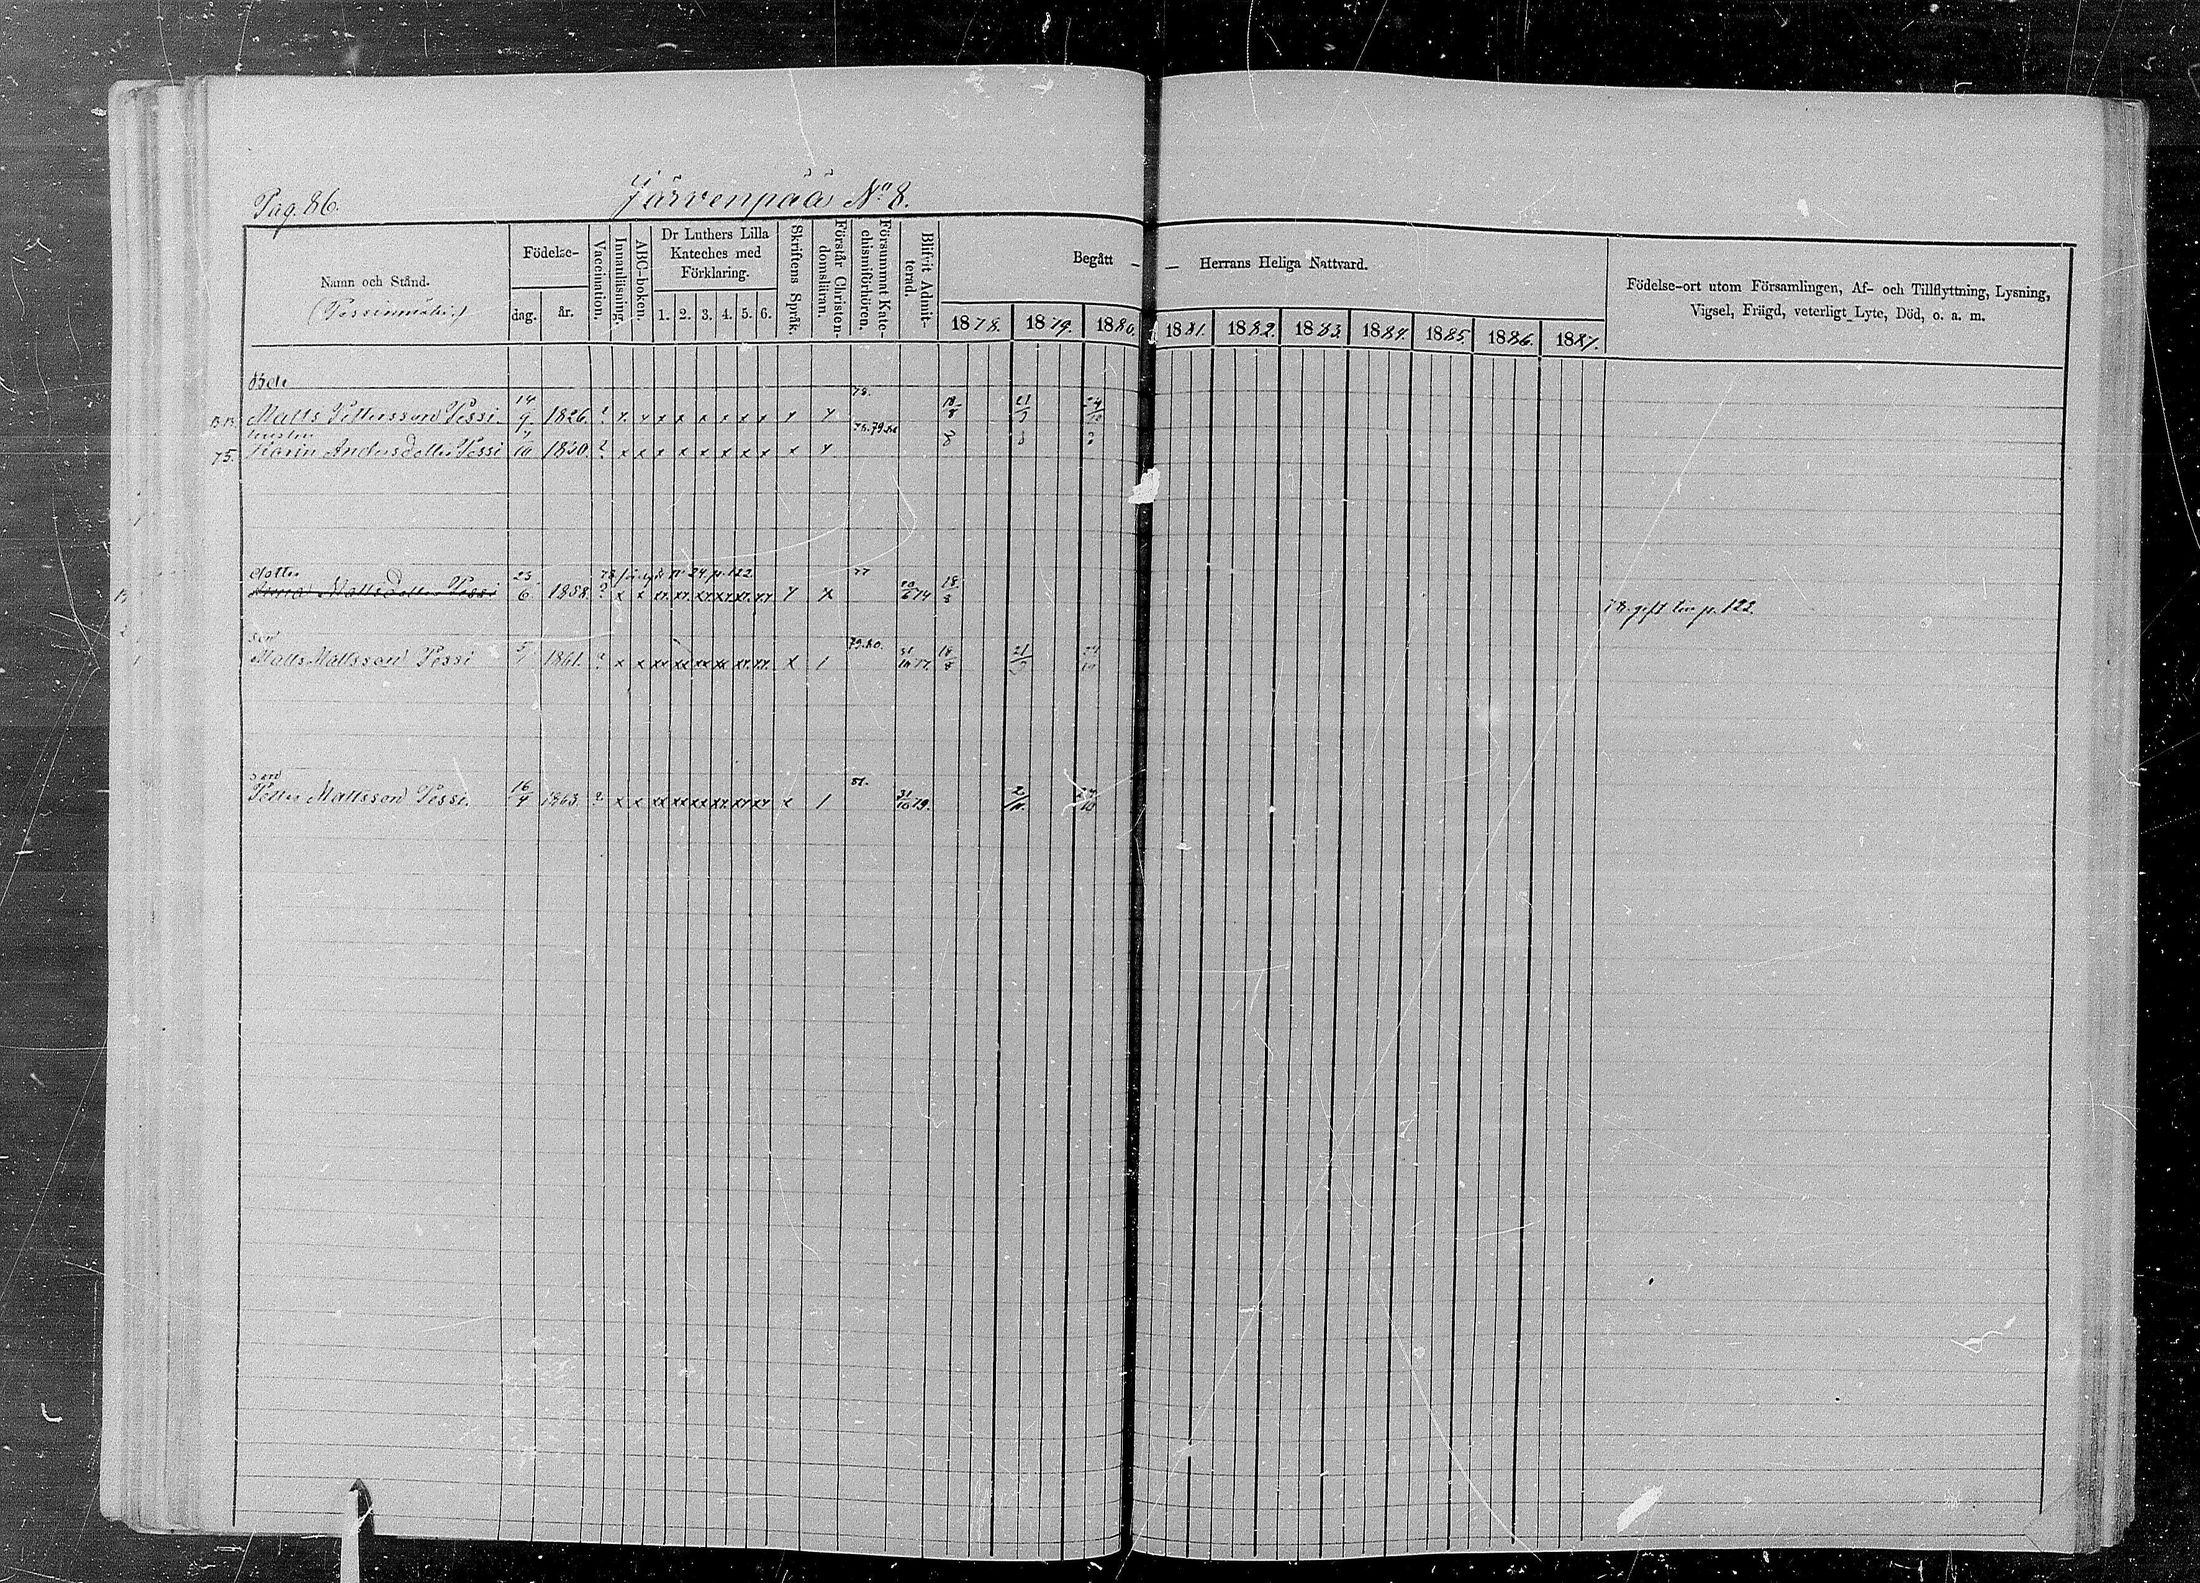 Pag. 86.
Järvenpää No 8.
Namn och Stånd.
Födelse-
dag.
år.
Vaccination.
Innanläsning.
ABC-boken.
Dr Luthers Lilla
Kateches med
Förklaring.
1. 2. 3. 4. 5. 6.
Skriftens Språk.
Förstår Christen-
domsläran.
Försummat Kate-
chismiförhören.
Blifvit Admit-
terad.
Begått — — Herrans Heliga Nattvard.
1878. 1879. 1880. 1881. 1882. 1883. 1884. 1885. 1886. 1887.
Födelse-ort utom Församlingen, Af- och Tillflyttning, Lysning,
Vigsel, Frägd, veterligt Lyte, Död, o. a. m.
78.
Matts Pettersson Pessi. 14/9 1826. ? x x x x x x x x x x 18/8 21/9 24/10
hustru 78.79.80
75. Karin Andersdotter Pessi 1830. ? x x x x x x x x x x
dotter 77
Anna Mattsdotter Pessi 23/6 1858. ? x x xx xx xx xx xx xx x x 18/8
78. gift p. 122.
son 79.80.
Matts Mattsson Pessi 1861. ? x x xx xx xx xx xx xx x 1 31/10 77. 18/8 21/9 24/10
son 81.
Petter Mattsson Pessi. 16/4 1863. ? x x xx xx xx xx xx xx x 1 31/10 79. 2/11. 24/10